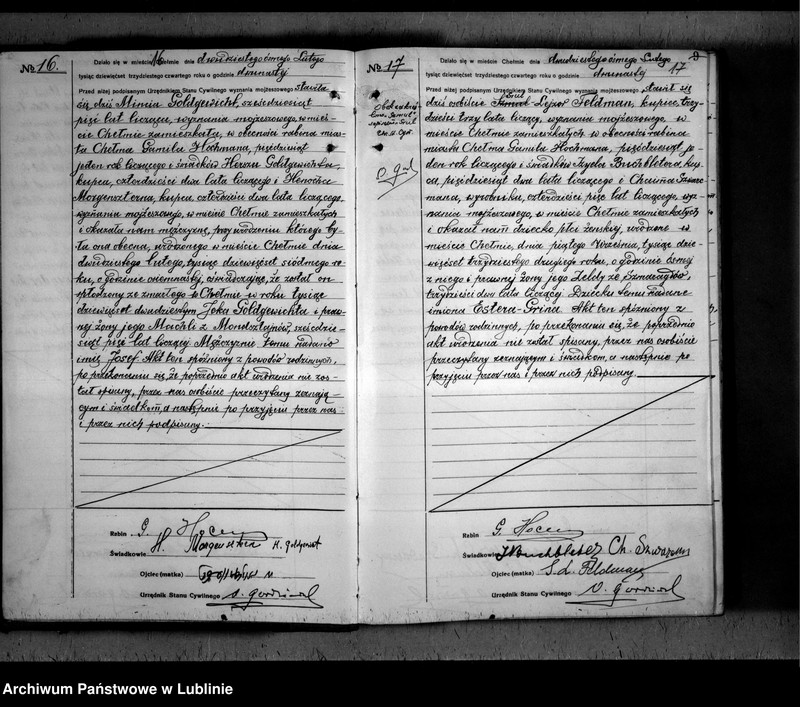 № 16.
Działo się w mieście Chełmie dnia dwudziestego ósmego Lutego
tysiąc dziewięćset trzydziestego czwartego roku o godzinie dwunastej
Przed niżej podpisanym Urzędnikiem Stanu Cywilnego wyznania mojżeszowego stawiła
się dziś Mincia Goldgewicht, sześćdziesiąt
pięć lat licząca, wyznania mojżeszowego, w mieś-
cie Chełmie zamieszkała, w obecności rabina mia-
sta Chełma Gamila Hochmana, pięćdziesiąt
jeden rok liczącego i świadków Herszu Goldgewichta,
kupca, czterdzieści dwa lata liczącego i Henocha
Morgensztorna, kupca, czterdzieści dwa lata liczącego,
wyznania mojżeszowego, w mieście Chełmie zamieszkałych
i okazała nam mężczyznę, przy urodzeniu którego by-
ła ona obecna, urodzonego w mieście Chełmie dnia
dwudziestego lutego, tysiąc dziewięćset siódmego ro-
ku, o godzinie osiemnastej, oświadczając, że został on
spłodzony ze zmarłego w Chełmie w roku tysiąc
dziewięćset dwudziestym Joka Goldgewichta i praw-
nej żony jego
sześćdzie-
siąt pięć lat liczącej Mężczyźnie temu nadano
imię Josef Akt ten spóźniony z powodów rodzinnych,
po przekonaniu się, że poprzednio akt urodzenia nie zos-
tał spisany, przez nas osobiście przeczytany zeznają-
cym i świadkom, a następnie po przyjęciu przez nas
i przez nich podpisany.
Rabin G. Hocman
Świadkowie H. Morgensztern H. Goldgewicht
Ojciec (matka)
Urzędnik Stanu Cywilnego
№ 17
17
Działo się w mieście Chełmie dnia dwudziestego ósmego Lutego
tysiąc dziewięćset trzydziestego czwartego roku o godzinie dwunastej
Przed niżej podpisanym Urzędnikiem Stanu Cywilnego wyznania mojżeszowego stawił się
dziś osobiście Lejzor Feldman, kupiec, trzy-
dzieści trzy lata liczący, wyznania mojżeszowego, w
mieście Chełmie zamieszkały w obecności rabina
miasta Chełma Gamila Hochmana, pięćdziesiąt je-
den rok liczącego i świadków Buchbletera, kup-
ca, pięćdziesiąt dwa lata liczącego i Chaima Szwarc-
mana, wyrobnika, czterdzieści pięć lat liczącego, wyz-
nania mojżeszowego, w mieście Chełmie zamieszkałych
i okazał nam dziecko płci żeńskiej, urodzone w
mieście Chełmie, dnia piątego Września, tysiąc dzie-
więćset trzydziestego drugiego roku, o godzinie ósmej
z niego i prawnej żony jego Zeldy ze Szmaragdów,
trzydzieści dwa lata liczącej Dziecku temu nadano
imiona Estera-Gryna Akt ten spóźniony z
powodów rodzinnych, po przekonaniu się, że poprzednio
akt urodzenia nie został spisany, przez nas osobiście
przeczytany zeznającym i świadkom, a następnie po
przyjęciu przez nas i przez nich podpisany
Rabin G. Hocman
Świadkowie I. Buchbleter Ch. Szwarcman
Ojciec (matka) S. L. Feldman
Urzędnik Stanu Cywilnego
Archiwum Państwowe w Lublinie